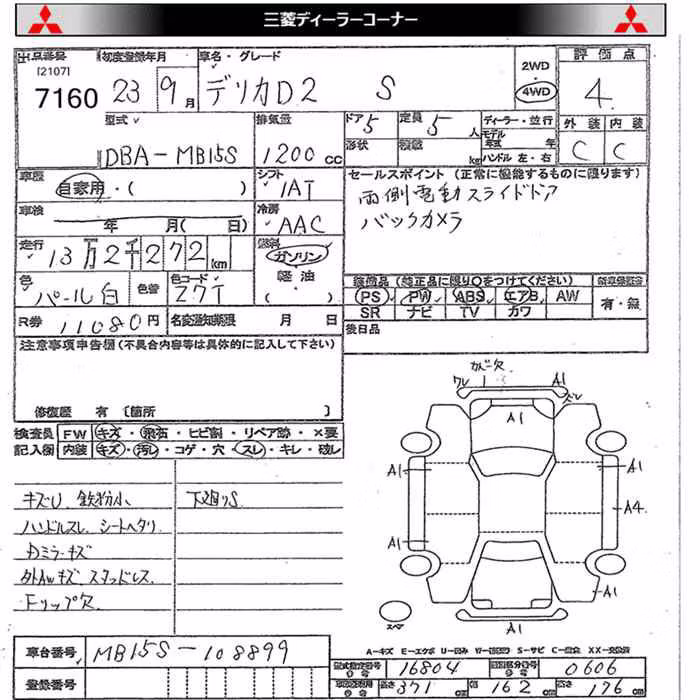 三菱ディーラーコーナー
出品番号 初度登録年月 車名・グレード 2WD 評価点
[2107] 7160 23 9月 デリカD2 S 4WD 4
型式 排気量 ドア 5 定員 5人 ディーラー・並行 外装 内装
モデル年式 年
DBA-MB15S 1200cc 形状 積載 kg ハンドル 左・右 C C
車歴 シフト セールスポイント(正常に機能するものに限ります)
自家用・( ) IAT 両側電動スライドドア
車検 年 月(日) 冷房 AAC バックカメラ
走行 13万2千272km 燃料 ガソリン
軽油
( )
色 パール白 色替 色コード Z7T 装備品(純正品に限り○をつけてください) 新車保証書
PS PW ABS エアB AW 有・無
SR ナビ TV カワ
R券 11080円 名変通知期限 月 日 後日品
注意事項申告欄(不具合内容等は具体的に記入して下さい)
修復歴 有 [箇所 ]
検査員記入欄 FW キズ・飛石・ヒビ割・リペア跡・×要
内装 キズ・汚れ・コゲ・穴・スレ・キレ・破レ
キズU 鉄粉小、 下廻りS
ハンドルスレ、シートヘタリ
ドミラーキズ
外AWキズ、スタッドレス
Fリップ欠
カバー欠
ワレ A1
A1
A1 A1
A4
A1
スペア A1
A-キズ E-エクボ U-凹み W-波凹り S-サビ C-腐食 XX-交換済
車台番号 MB15S-108899
登録番号
型式指定番号 16804 類別区分番号 0606
長さ 371cm 幅 162cm 高さ 176cm